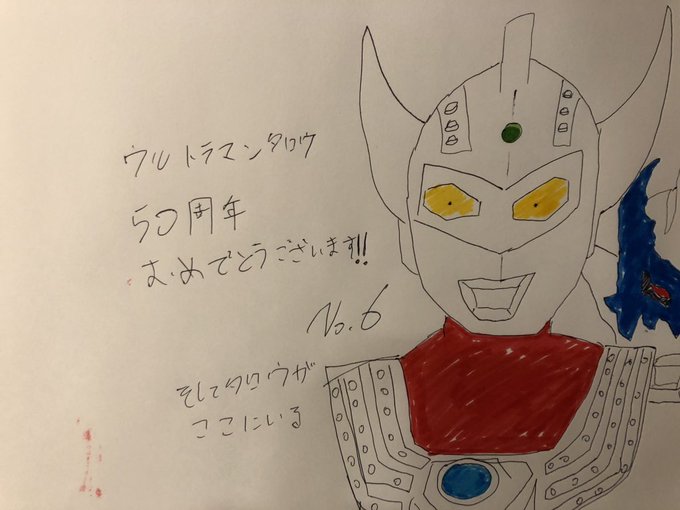 ウルトラマンタロウ
50周年
おめでとうございます!!
No.6
そしてタロウが
ここにいる